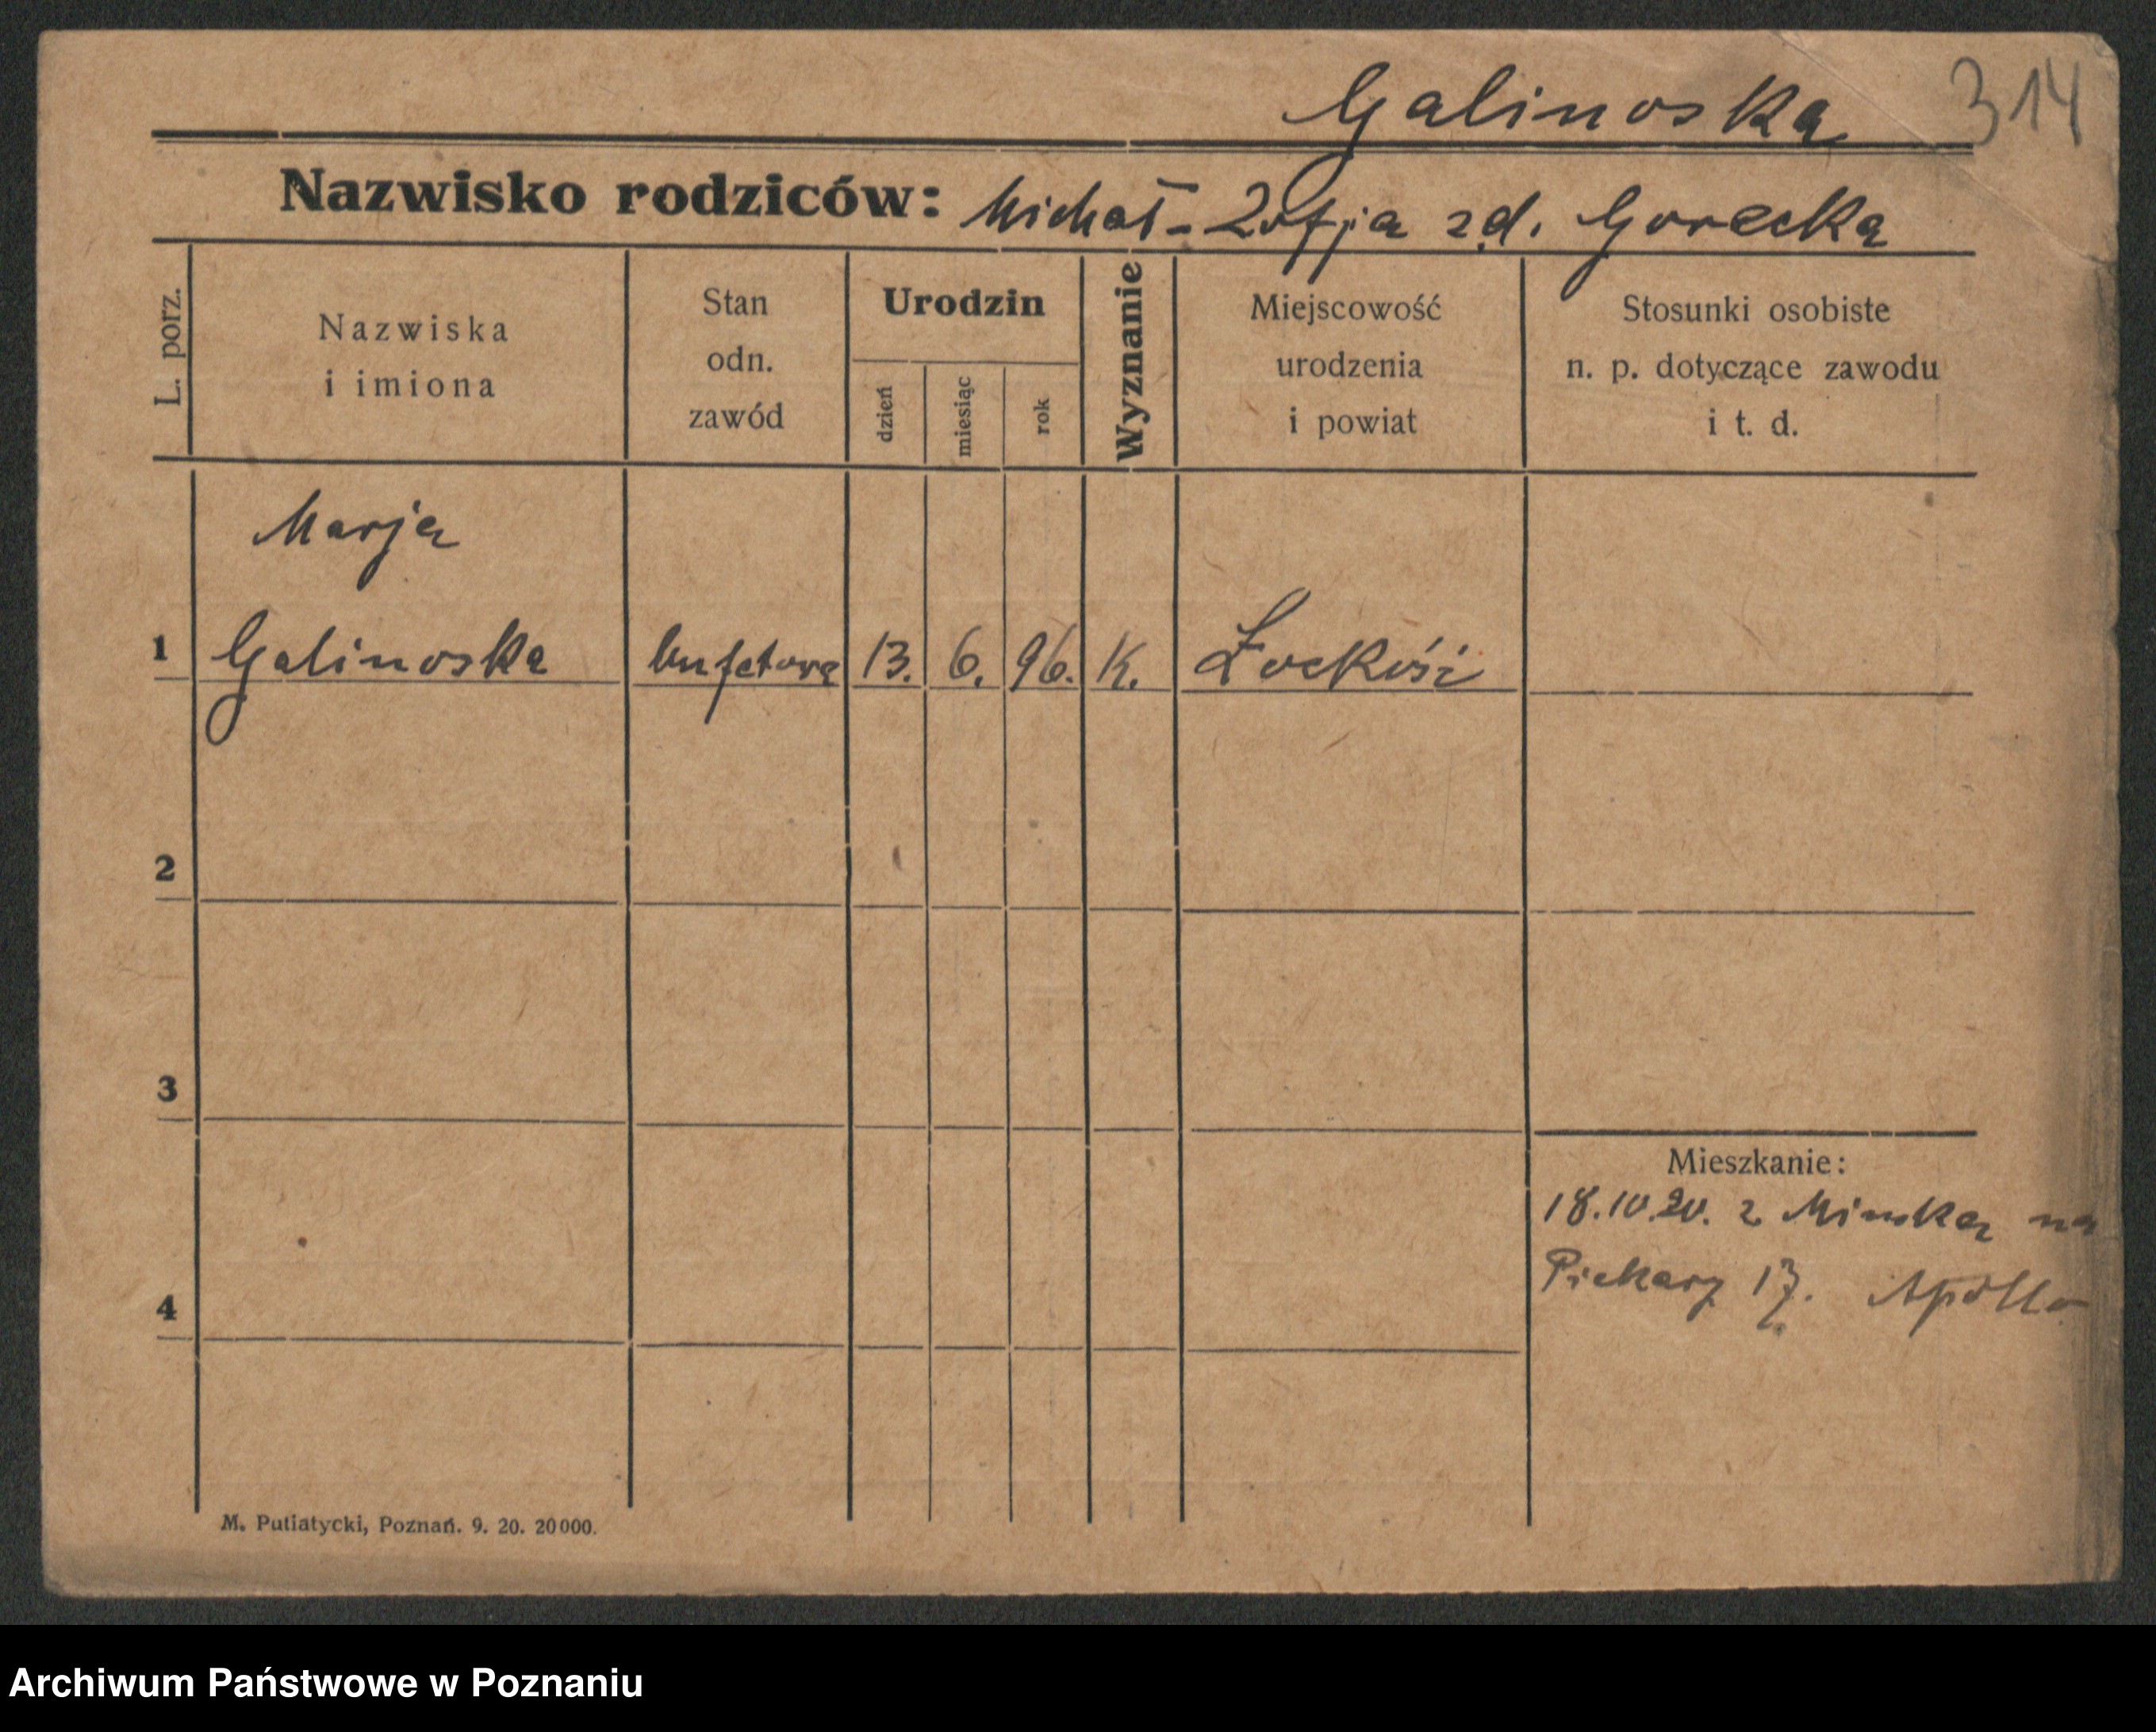 Galinoska 314
Nazwisko rodziców: Michał - Zofja zd. Gorecka
L. porz.
Nazwiska
i imiona
Stan
odn.
zawód
Urodzin
dzień
miesiąc
rok
Wyznanie
Miejscowość
urodzenia
i powiat
Stosunki osobiste
n. p. dotyczące zawodu
i t. d.
Marja
1 Galinoska bufetowa 13. 6. 96. K.
2
3
Mieszkanie:
18.10.20. z Minska na
Piekary 17. Apollo
4
M. Putiatycki, Poznań. 9. 20. 20000.
Archiwum Państwowe w Poznaniu